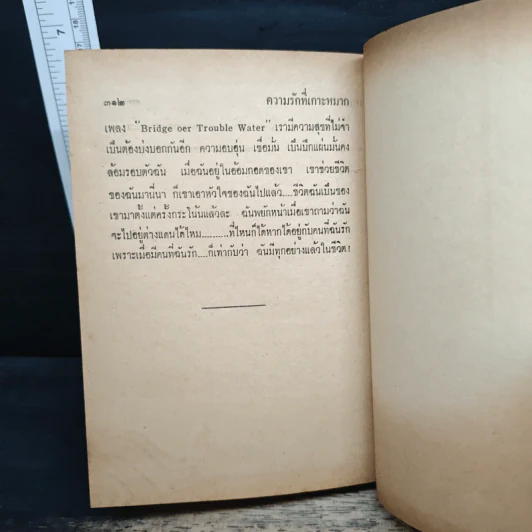 7
๓๑๒ ความรักที่เกาะหมาก
เพลง "Bridge oer Trouble Water" เรามีความสุขที่ไม่จำ
เป็นต้องบ่งบอกกันอีก ความอบอุ่น เชื่อมั่น เป็นปึกแผ่นมั่นคง
ล้อมรอบตัวฉัน เมื่อฉันอยู่ในอ้อมกอดของเขา เขาช่วยชีวิต
ของฉันมานี่นา ก็เขาเอาหัวใจของฉันไปแล้ว....ชีวิตฉันเป็นของ
เขามาตั้งแต่ครั้งกระโน้นแล้วละ ฉันพยักหน้าเมื่อเขาถามว่าฉัน
จะไปอยู่ต่างแดนได้ไหม.........ที่ไหนก็ได้หากได้อยู่กับคนที่ฉันรัก
เพราะเมื่อมีคนที่ฉันรัก....ก็เท่ากับว่า ฉันมีทุกอย่างแล้วในชีวิต!